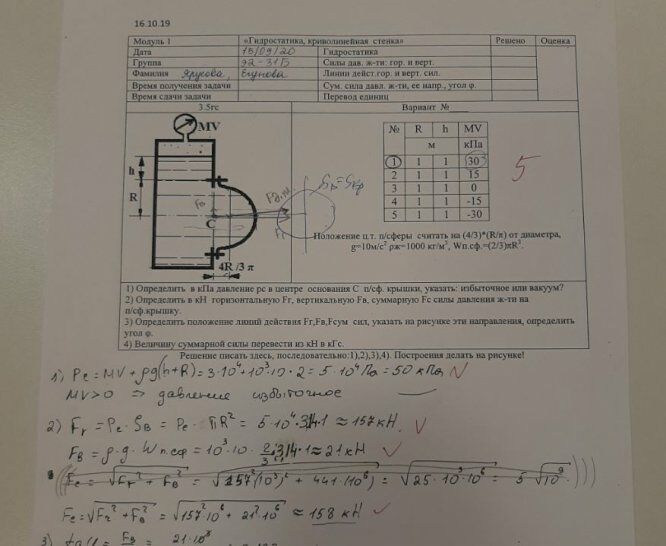 16.10.19
Модуль 1 «Гидростатика, криволинейная стенка» Решено Оценка
Дата 15/09/20 Гидростатика
Группа Э2-31Б Силы дав. ж-ти: гор. и верт.
Фамилия Линии дейст.гор. и верт. сил.
Время получения задачи Сум. сила давл. ж-ти, ее напр., угол φ.
Время сдачи задачи Перевод единиц
3.5гс Вариант №
MV
h
R
C
4R /3 π
Fв
Fг
Sв=Sкр
№ R h MV
м кПа
1 1 1 30
2 1 1 15
3 1 1 0
4 1 1 -15
5 1 1 -30
5
Положение ц.т. п/сферы считать на (4/3)*(R/π) от диаметра,
g=10м/с² ρж=1000 кг/м³, Wп.сф.=(2/3)πR³.
1) Определить в кПа давление рс в центре основания С п/сф. крышки, указать: избыточное или вакуум?
2) Определить в кН горизонтальную Fг, вертикальную Fв, суммарную Fс силы давления ж-ти на
п/сф.крышку.
3) Определить положение линий действия Fг,Fв,Fсум сил, указать на рисунке эти направления, определить
угол φ.
4) Величину суммарной силы перевести из кН в кГс.
Решение писать здесь, последовательно:1),2),3),4). Построения делать на рисунке!
1) Pc = MV + ρg(h+R) = 3·10⁴+10³·10·2 = 5·10⁴ Па = 50 кПа
MV>0 ⇒ давление избыточное
2) Fг = Pc · Sв = Pc · πR² = 5·10⁴·3,14·1 ≈ 157 кН
Fв = ρ·g·Wп.сф = 10³·10·2/3·3,14·1 ≈ 21 кН
Fc = √Fг² + Fв² = √157²·10⁶ + 21²·10⁶ ≈ 158 кН
3)